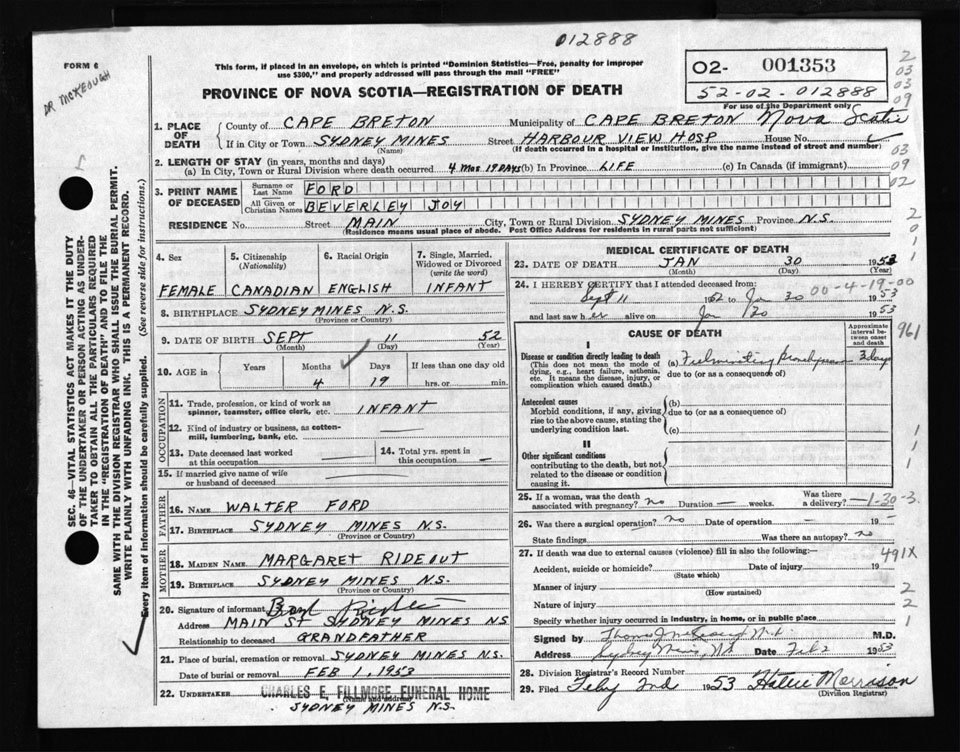 012888
FORM 6
DR. MCKEOUGH
This form, if placed in an envelope, on which is printed "Dominion Statistics—Free, penalty for improper
use $300," and properly addressed will pass through the mail "FREE"
PROVINCE OF NOVA SCOTIA—REGISTRATION OF DEATH
02- 001353
52-02-012888
For use of the Department only
SEC. 46—VITAL STATISTICS ACT MAKES IT THE DUTY
OF THE UNDERTAKER OR PERSON ACTING AS UNDER-
TAKER TO OBTAIN ALL THE PARTICULARS REQUIRED
IN THE "REGISTRATION OF DEATH" AND TO FILE THE
SAME WITH THE DIVISION REGISTRAR WHO SHALL ISSUE THE BURIAL PERMIT.
WRITE PLAINLY WITH UNFADING INK. THIS IS A PERMANENT RECORD.
Every item of information should be carefully supplied. (See reverse side for instructions.)
1. PLACE OF DEATH
County of CAPE BRETON Municipality of CAPE BRETON Nova Scotia
If in City or Town SYDNEY MINES Street HARBOUR VIEW HOSP House No.
(Name) (If death occurred in a hospital or institution, give the name instead of street and number)
2. LENGTH OF STAY (in years, months and days)
(a) In City, Town or Rural Division where death occurred 4 Mos 19 DAYS (b) In Province LIFE (c) In Canada (if immigrant)
3. PRINT NAME OF DECEASED
Surname or Last Name FORD
All Given or Christian Names BEVERLEY JOY
RESIDENCE No. Street MAIN City, Town or Rural Division SYDNEY MINES Province N.S.
(Residence means usual place of abode. Post Office Address for residents in rural parts not sufficient)
4. Sex 5. Citizenship (Nationality) 6. Racial Origin 7. Single, Married, Widowed or Divorced (write the word)
FEMALE CANADIAN ENGLISH INFANT
8. BIRTHPLACE SYDNEY MINES N.S.
(Province or Country)
9. DATE OF BIRTH SEPT 11 52
(Month) (Day) (Year)
10. AGE in Years Months Days If less than one day old
4 19 hrs. or min.
OCCUPATION
11. Trade, profession, or kind of work as
spinner, teamster, office clerk, etc. INFANT
12. Kind of industry or business, as cotton-
mill, lumbering, bank, etc. —
13. Date deceased last worked
at this occupation —
14. Total yrs. spent in
this occupation —
15. If married give name of wife
or husband of deceased
FATHER
16. NAME WALTER FORD
17. BIRTHPLACE SYDNEY MINES N.S.
(Province or Country)
MOTHER
18. MAIDEN NAME MARGARET RIDEOUT
19. BIRTHPLACE SYDNEY MINES N.S.
(Province or Country)
20. Signature of informant
Address MAIN ST SYDNEY MINES N.S
Relationship to deceased GRANDFATHER
21. Place of burial, cremation or removal SYDNEY MINES N.S.
Date of burial or removal FEB 1, 1953
22. UNDERTAKER CHARLES E. FILLMORE FUNERAL HOME
(Name and address)
SYDNEY MINES N.S.
MEDICAL CERTIFICATE OF DEATH
23. DATE OF DEATH JAN 30 1953
(Month) (Day) (Year)
24. I HEREBY CERTIFY that I attended deceased from: 00-4-19-00
Sept 11 1952 to Jan 30 1953
and last saw her alive on Jan 30 1953
CAUSE OF DEATH
Approximate interval between onset and death
961
I
Disease or condition directly leading to death
(This does not mean the mode of
dying, e.g., heart failure, asthenia,
etc. It means the disease, injury, or
complication which caused death.)
(a) Fulminating 3 days
due to (or as a consequence of)
Antecedent causes
Morbid conditions, if any, giving
rise to the above cause, stating the
underlying condition last.
(b)
due to (or as a consequence of)
(c)
II
Other significant conditions
contributing to the death, but not
related to the disease or condition
causing it.
25. If a woman, was the death
associated with pregnancy? no Duration — weeks. Was there a delivery? — 1-30-3
26. Was there a surgical operation? no Date of operation — 19 —
State findings Was there an autopsy? no
27. If death was due to external causes (violence) fill in also the following:— 491X
Accident, suicide or homicide? Date of injury 19
(State which)
Manner of injury
(How sustained)
Nature of injury
Specify whether injury occurred in industry, in home, or in public place
Signed by M.D.
Address Sydney Mines, N.S Date Feb 2 1953
28. Division Registrar's Record Number
29. Filed Feby 2nd 1953 Hattie Morrison
(Division Registrar)
2
03
03
09
03
09
02
2
0
1
1
1
1
1
2
2
1